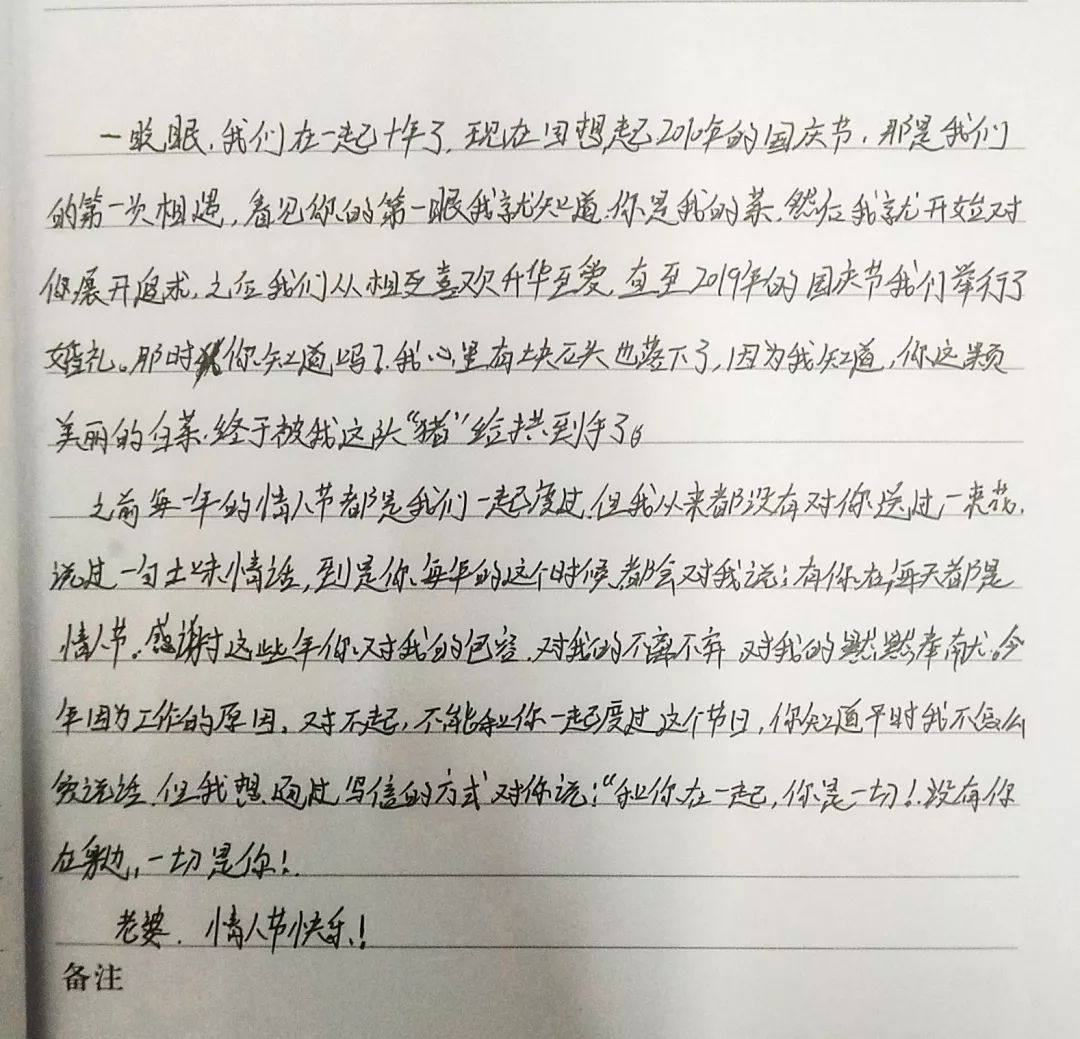 一眨眼，我们在一起十年了，现在回想起2010年的国庆节，那是我们
的第一次相遇，看见你的第一眼我就知道，你是我的菜，然后我就开始对
你展开追求，之后我们从相互喜欢升华至爱，直至2019年的国庆节我们举行了
婚礼。那时你知道吗？我心里有块石头也落下了，因为我知道，你这颗
美丽的白菜，终于被我这头“猪”给拱到手了。
之前每一年的情人节都是我们一起度过，但我从来都没有对你送过一束花，
说过一句土味情话，到是你每年的这个时候都会对我说：有你在每天都是
情人节。感谢这些年你对我的包容，对我的不离不弃，对我的默默奉献。今
年因为工作的原因，对不起，不能和你一起度过这个节日，你知道平时我不怎么
爱说话，但我想通过写信的方式对你说：“和你在一起，你是一切！没有你
在身边，一切是你！
老婆，情人节快乐！
备注